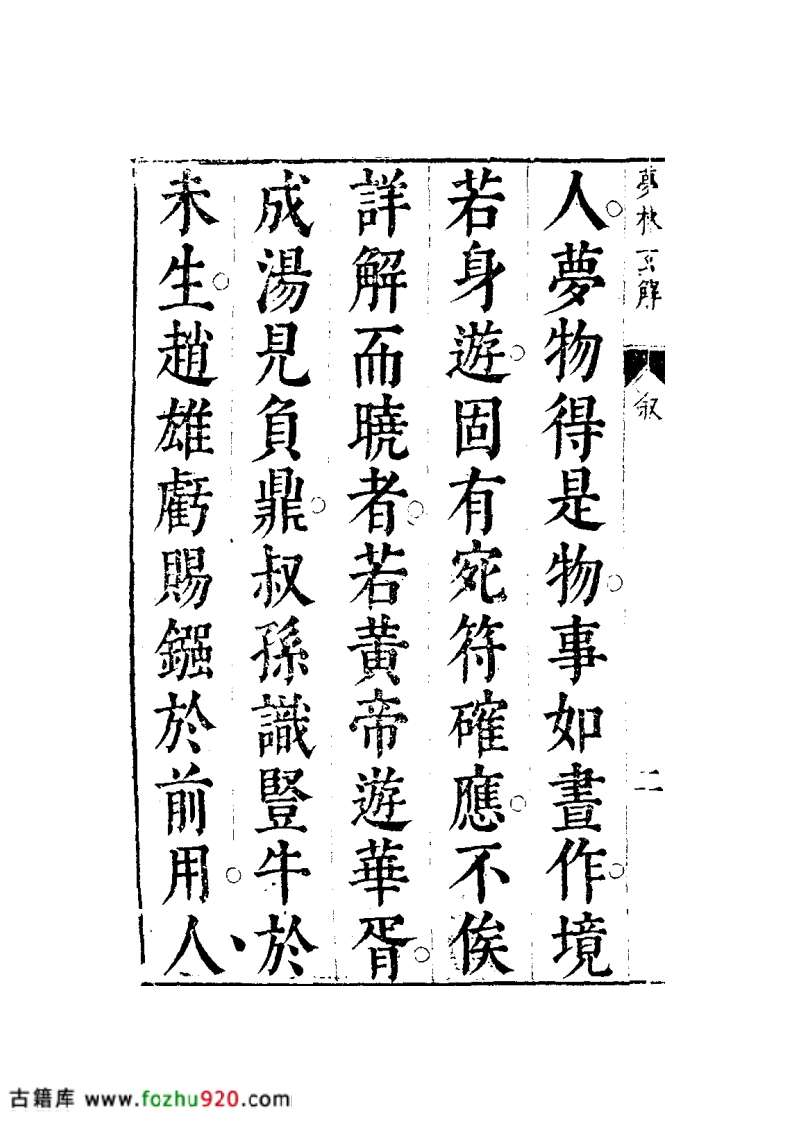 夢林玄解
叙
二
人夢物得是物事如晝作境
若身遊固有宛符確應不俟
詳解而曉者若黃帝遊華胥
成湯見負鼎叔孫識豎牛於
未生趙雄虧賜鏹於前用人
古籍库 www.fozhu920.com